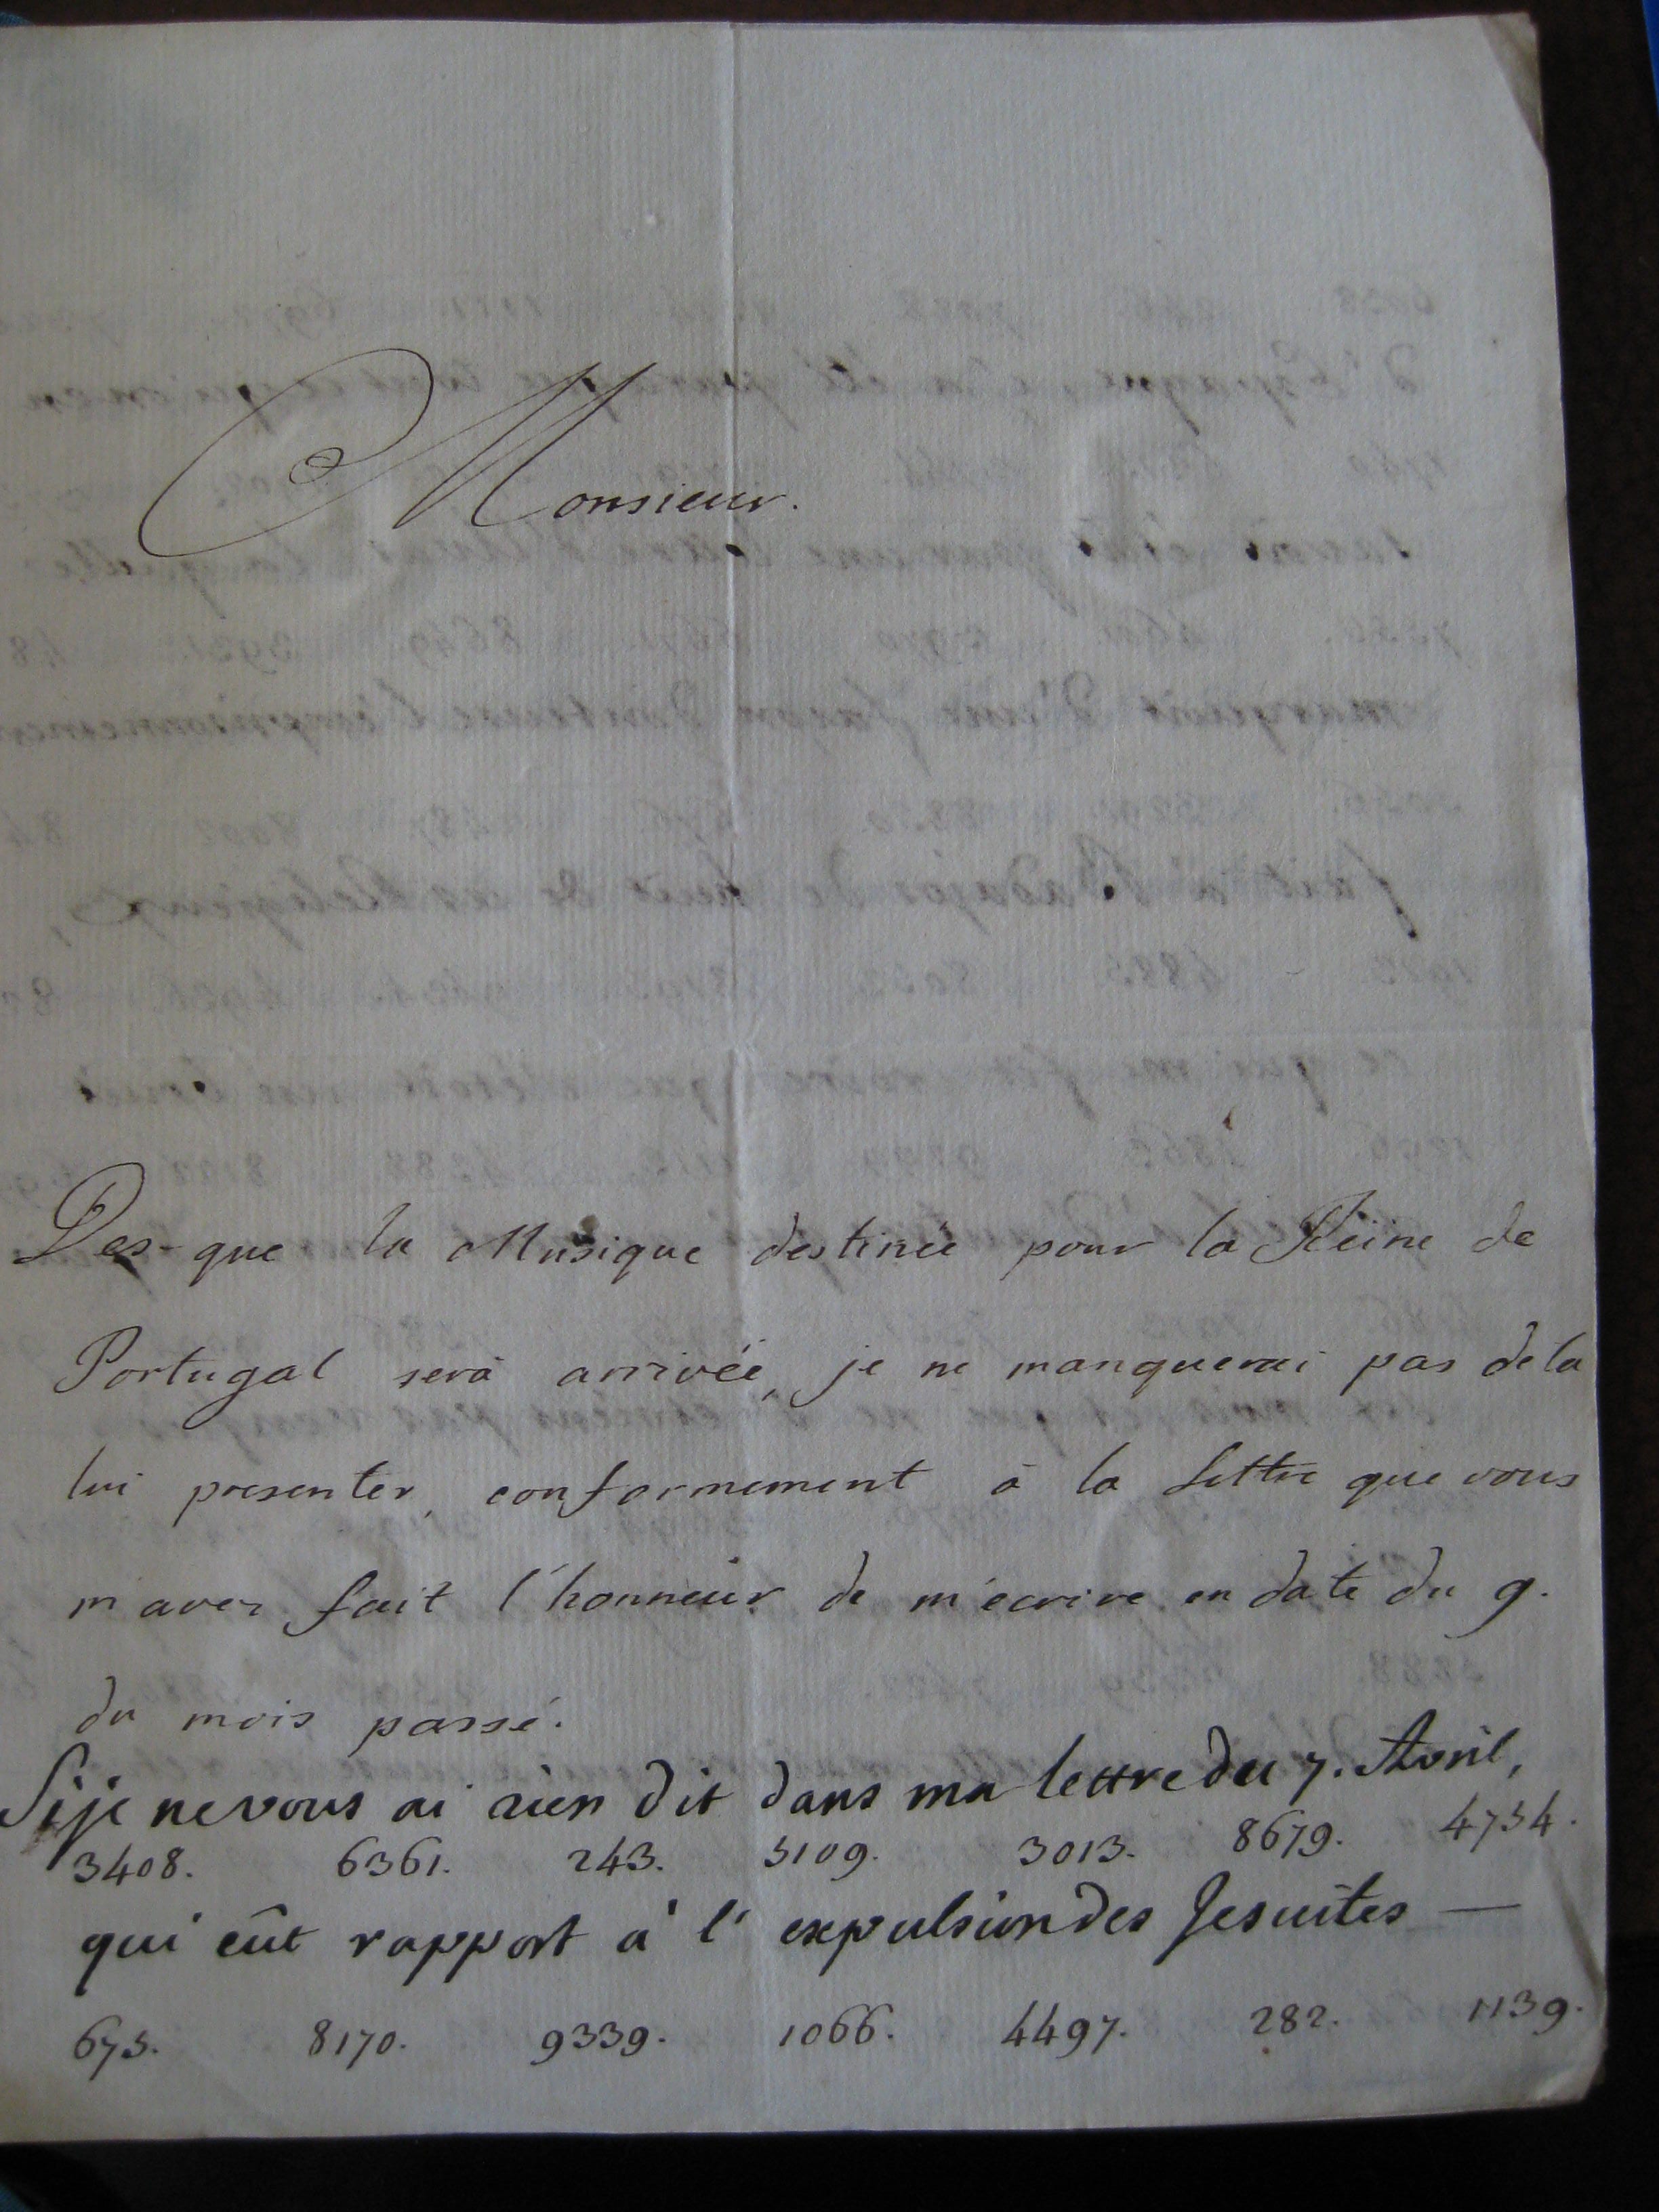 Monsieur.
Des-que la Musique destinée pour la Reine de
Portugal sera arrivée, je ne manquerai pas de la
lui presenter, conformement à la lettre que vous
m'avez fait l'honneur de m'ecrire en date du 9.
du mois passé.
Si je ne vous ai rien dit dans ma lettre du 7. Avril,
3408. 6361. 243. 5109. 3013. 8679. 4754.
qui eût rapport à l'expulsion des Jesuites —
675. 8170. 9339. 1066. 4497. 282. 1139.